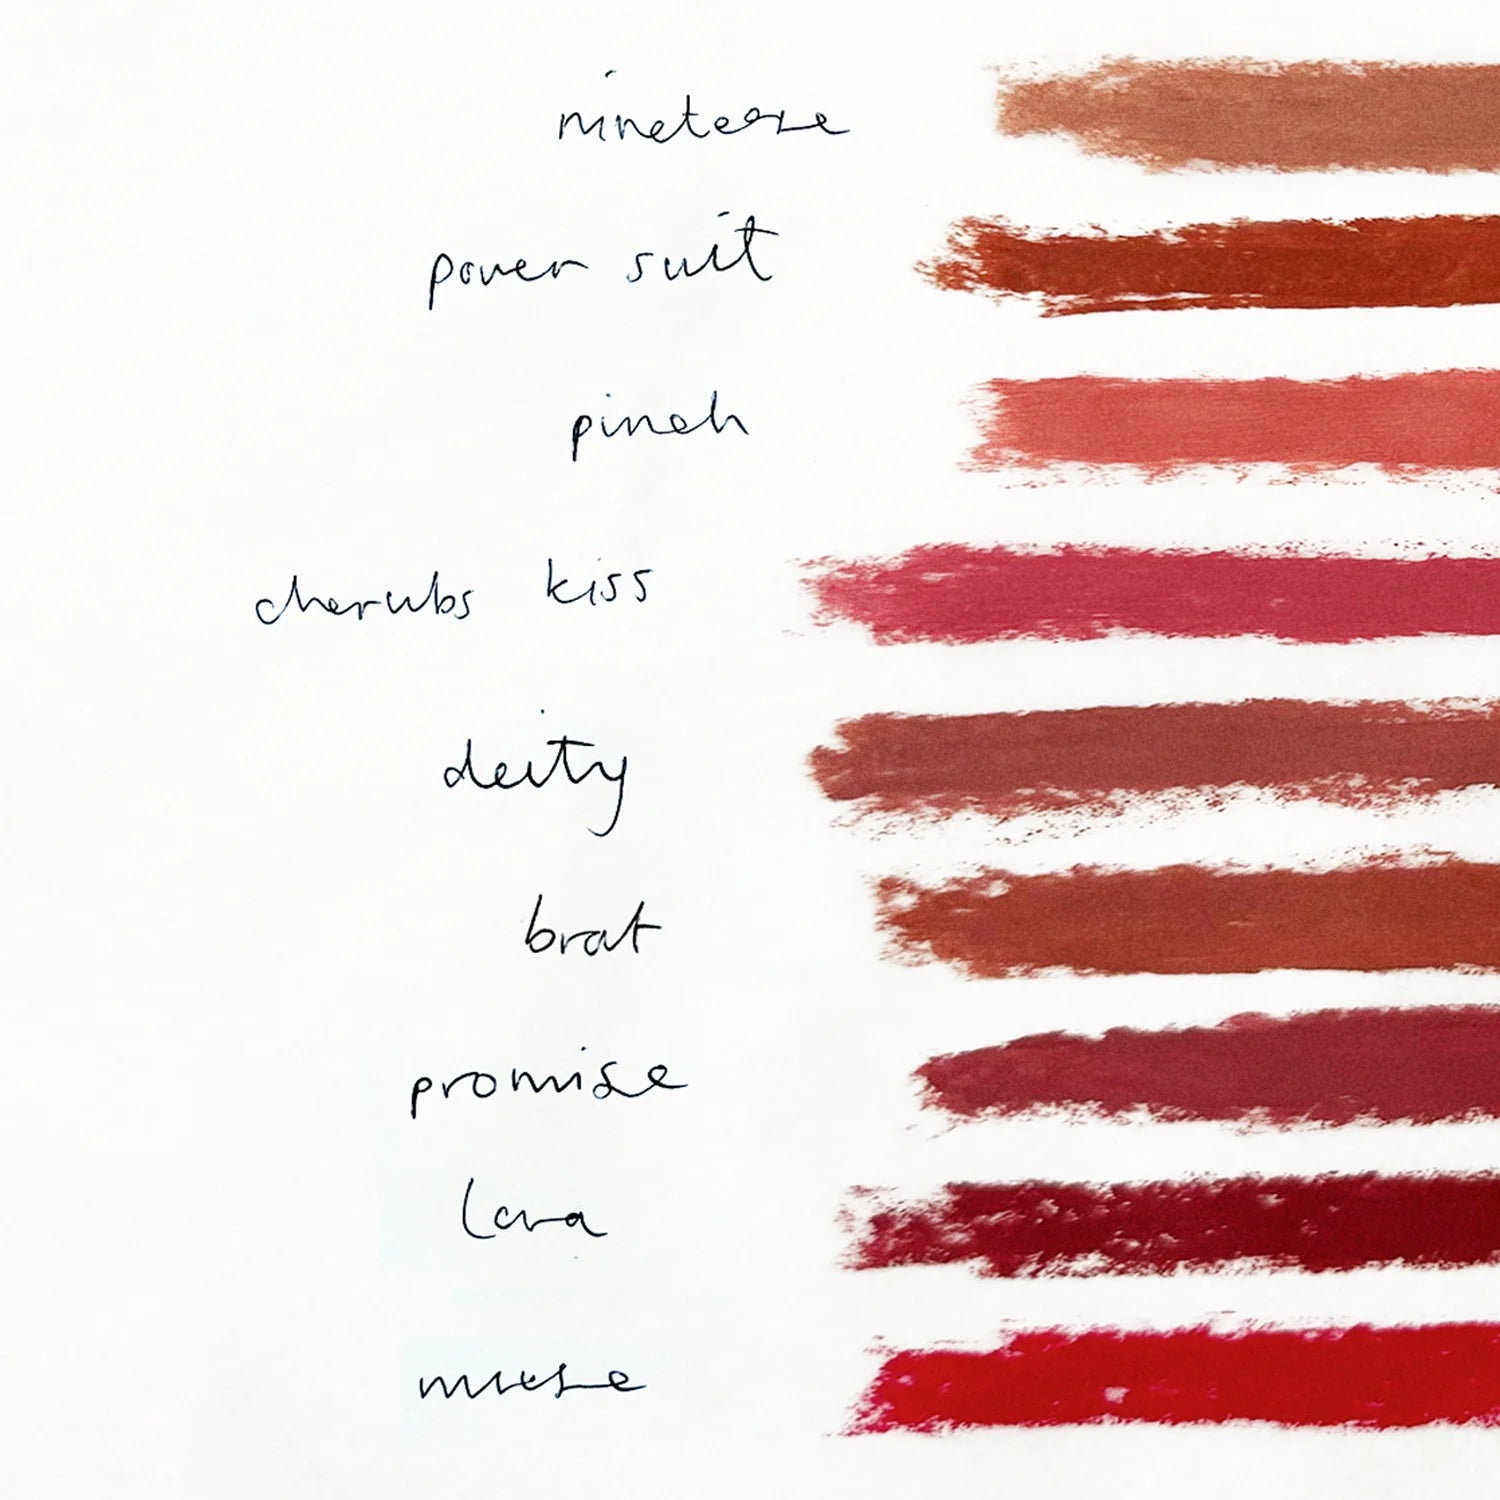 ninetease
power suit
pinch
cherubs kiss
deity
brat
promise
lava
muse